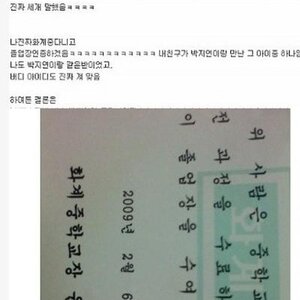 진짜 세개 말했음ㅋㅋㅋㅋ
나진짜화계중다니고
졸업장인증하겠음ㅋㅋㅋㅋㅋㅋㅋㅋㅋㅋㅋㅋ 내친구가 박지연이랑 만난 그 아이중 하나
나도 박지연이랑 같은반이었고,
버디 아이디도 진짜 걔 맞음
하여튼 결론은
위 사람은 중학교
전 과정을 수료하
이 졸업장을 수여
2009년 2월 6
화계중학교장